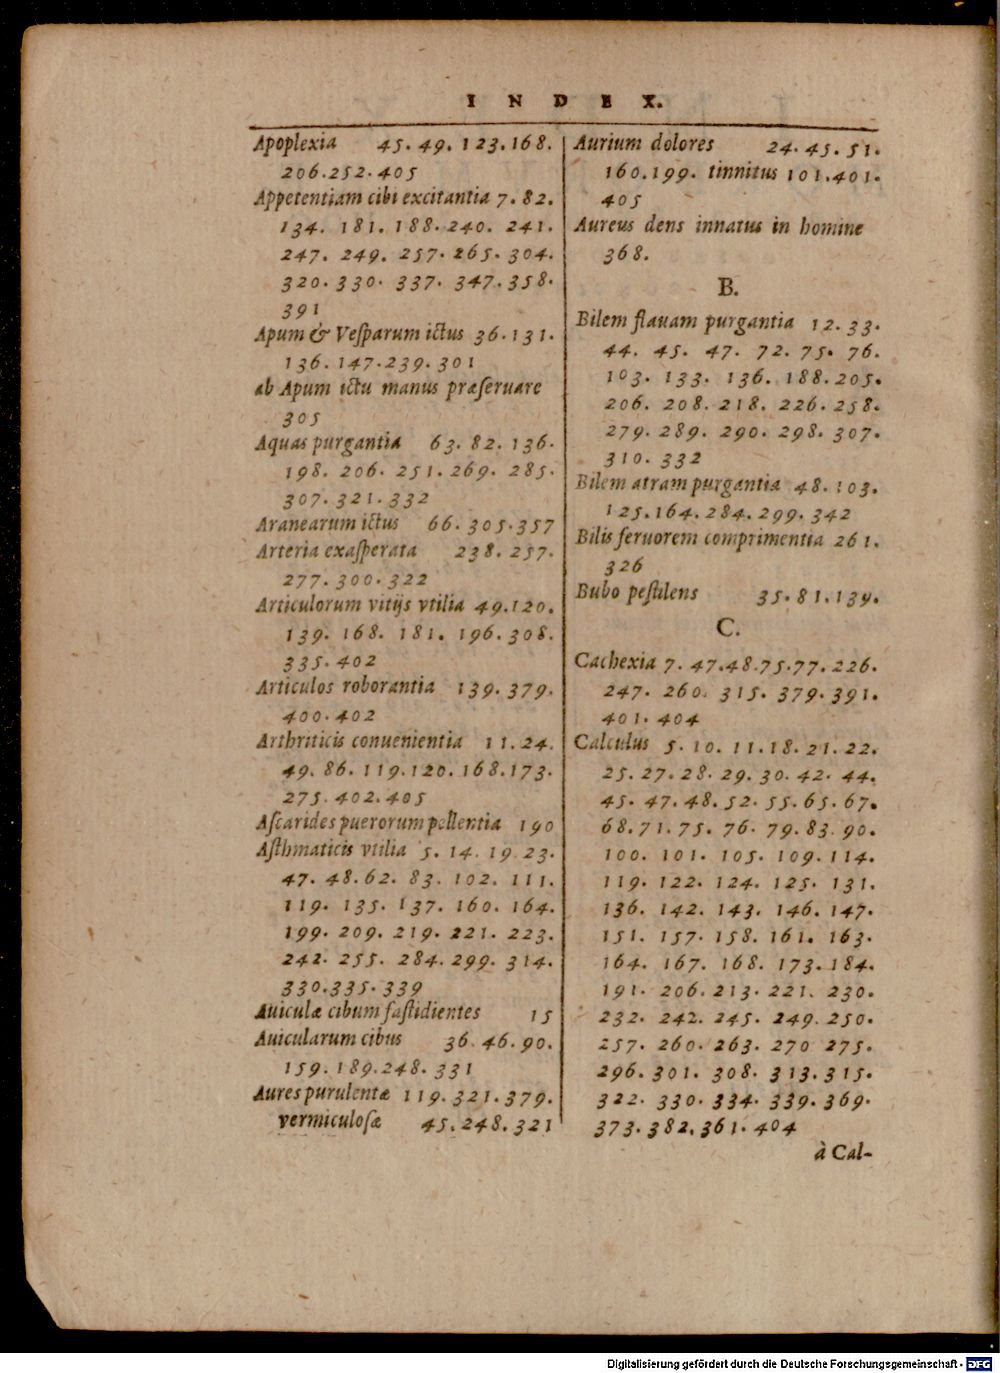 INDEX.
Apoplexia 45. 49. 123. 168.
206. 252. 405
Appetentiam cibi excitantia 7. 82.
134. 181. 188. 240. 241.
247. 249. 257. 265. 304.
320. 330. 337. 347. 358.
391
Apum & Veſparum ictus 36. 131.
136. 147. 239. 301
ab Apum ictu manus præſeruare
305
Aquas purgantia 63. 82. 136.
198. 206. 251. 269. 285.
307. 321. 332
Aranearum ictus 66. 305. 357
Arteria exaſperata 238. 257.
277. 300. 322
Articulorum vitijs vtilia 49. 120.
139. 168. 181. 196. 308.
335. 402
Articulos roborantia 139. 379.
400. 402
Arthriticis conuenientia 11. 24.
49. 86. 119. 120. 168. 173.
275. 402. 405
Aſcarides puerorum pellentia 190
Aſthmaticis vtilia 5. 14. 19 23.
47. 48. 62. 83. 102. 111.
119. 135. 137. 160. 164.
199. 209. 219. 221. 223.
242. 255. 284. 299. 314.
330. 335. 339
Auiculæ cibum faſtidientes 15
Auicularum cibus 36. 46. 90.
159. 189. 248. 331
Aures purulentæ 119. 321. 379.
vermiculoſæ 45. 248. 321
Aurium dolores 24. 45. 51.
160. 199. tinnitus 101. 401.
405
Aureus dens innatus in homine
368.
B.
Bilem flauam purgantia 12. 33.
44. 45. 47. 72. 75. 76.
103. 133. 136. 188. 205.
206. 208. 218. 226. 258.
279. 289. 290. 298. 307.
310. 332
Bilem atram purgantia 48. 103.
125. 164. 284. 299. 342
Bilis feruorem comprimentia 261.
326
Bubo peſtilens 35. 81. 139.
C.
Cachexia 7. 47. 48. 75. 77. 226.
247. 260. 315. 379. 391.
401. 404
Calculus 5. 10. 11. 18. 21. 22.
25. 27. 28. 29. 30. 42. 44.
45. 47. 48. 52. 55. 65. 67.
68. 71. 75. 76. 79. 83. 90.
100. 101. 105. 109. 114.
119. 122. 124. 125. 131.
136. 142. 143. 146. 147.
151. 157. 158. 161. 163.
164. 167. 168. 173. 184.
191. 206. 213. 221. 230.
232. 242. 245. 249. 250.
257. 260. 263. 270 275.
296. 301. 308. 313. 315.
322. 330. 334. 339. 369.
373. 382. 361. 404
à Cal-
Digitalisierung gefördert durch die Deutsche Forschungsgemeinschaft - DFG